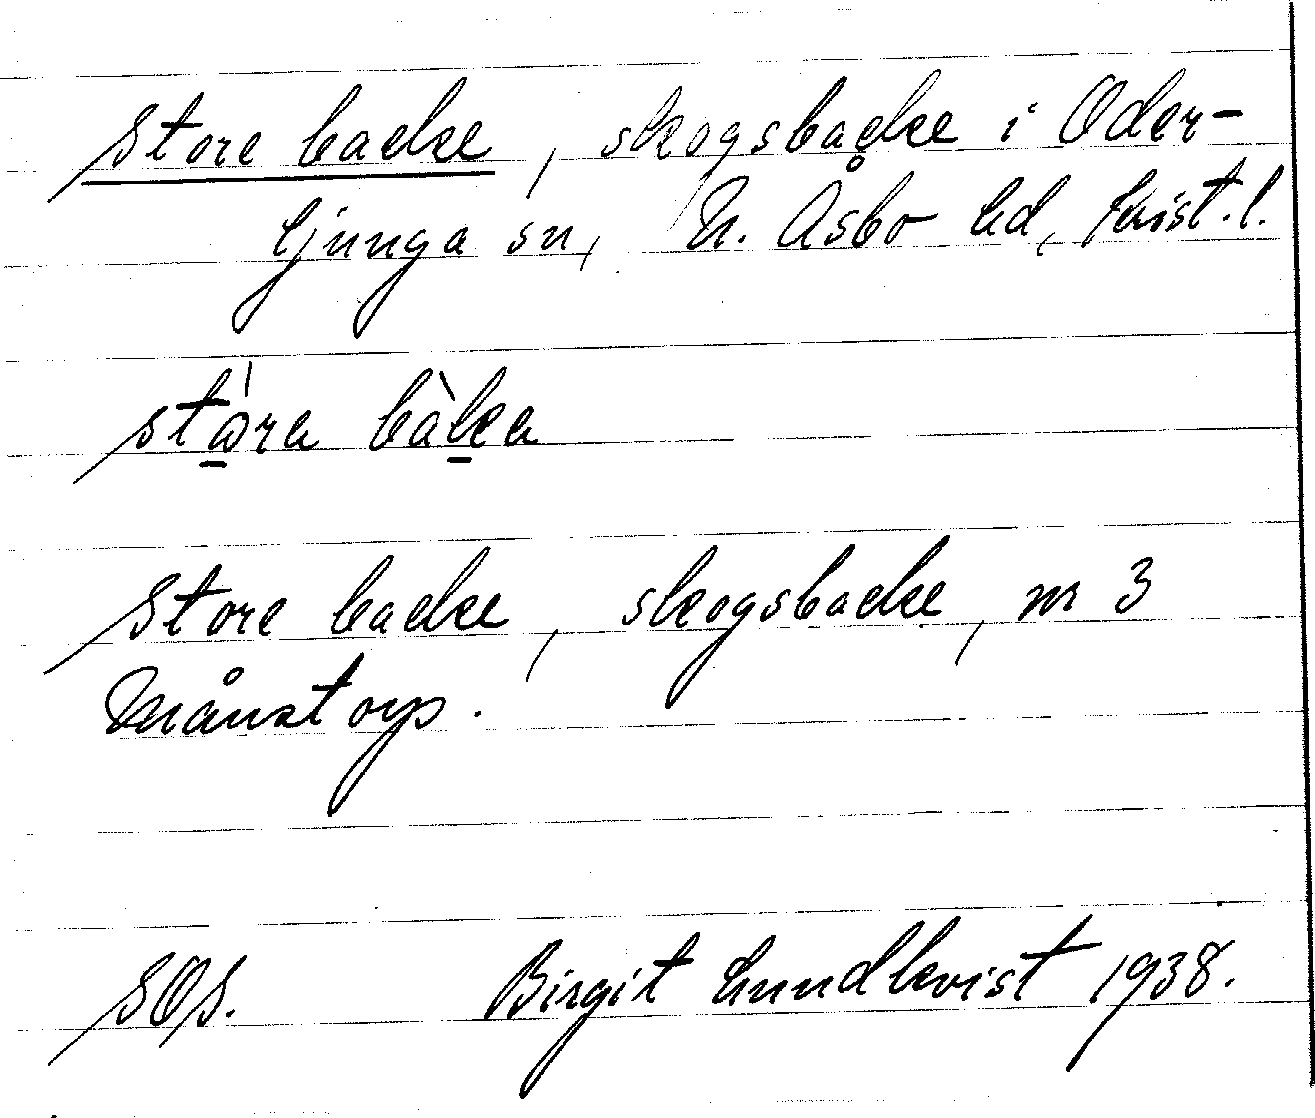 Store backe, skogsbacke i Oder-
ljunga sn, N. Åsbo hd, Krist. l.
Store backe, skogsbacke, nr 3
Månstorp.
SOS. Birgit Lundkvist 1938.